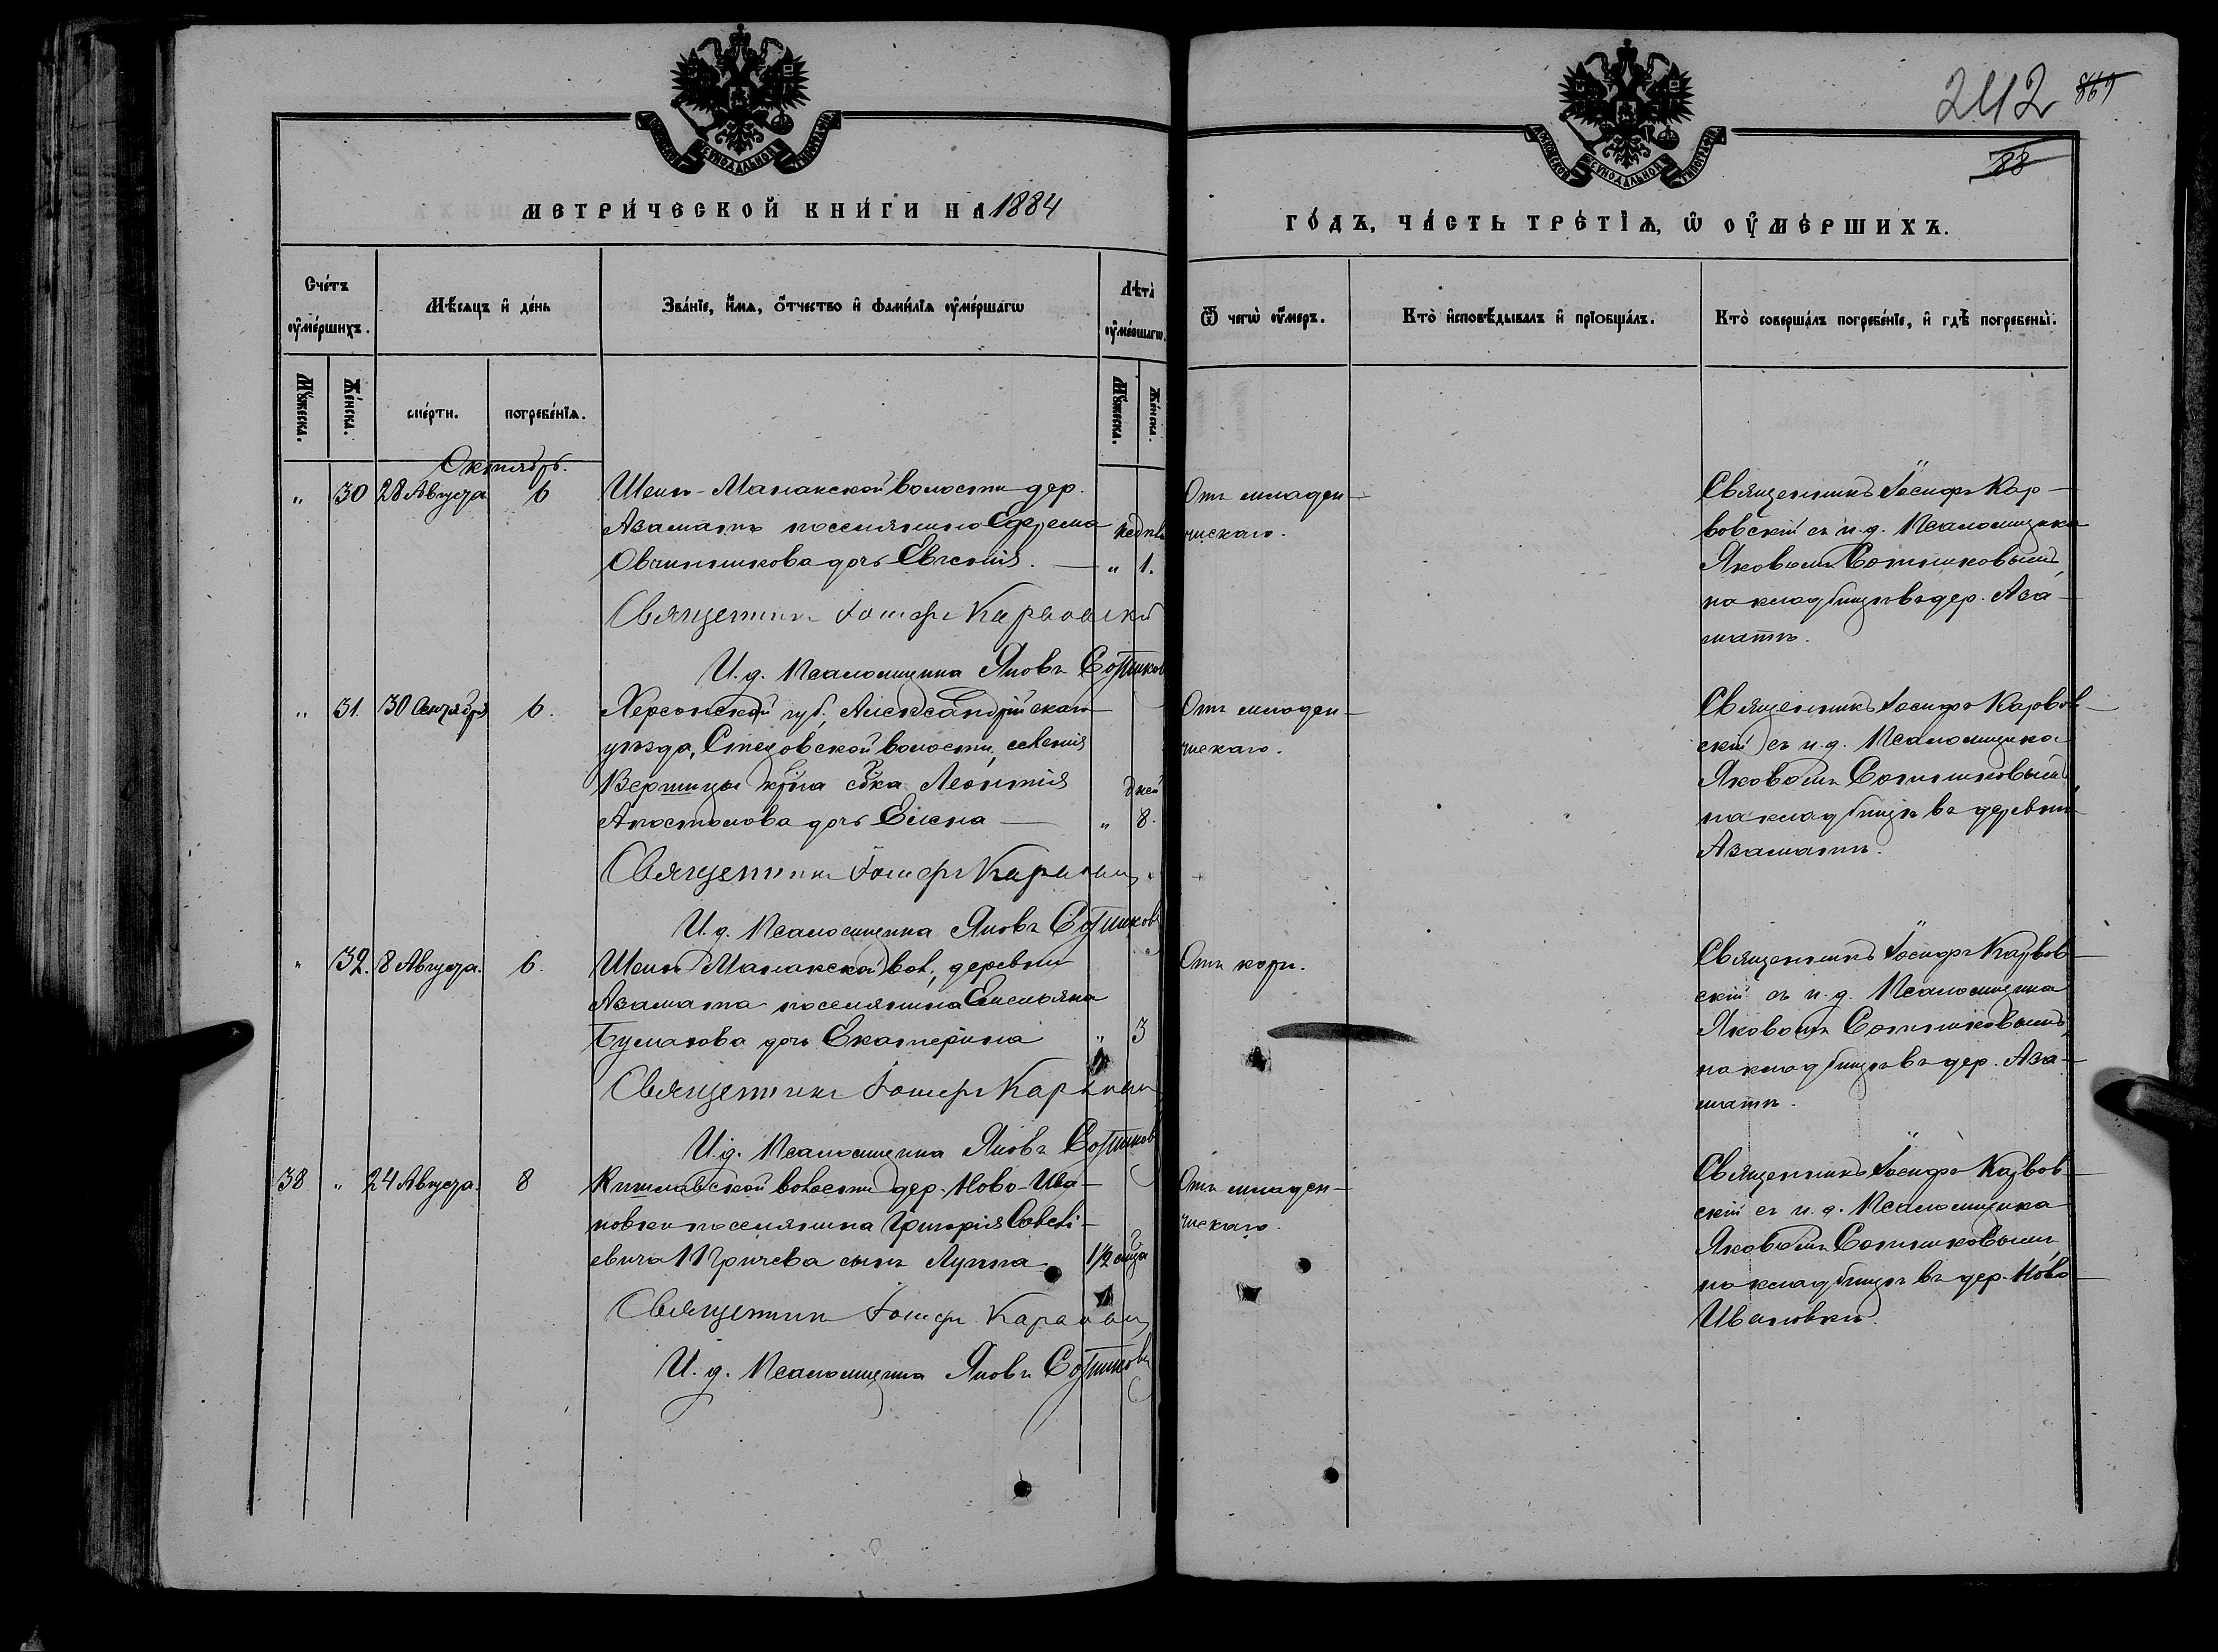 2412 869
88
МЕТРИ́ЧЕСКОЙ КНИ́ГИ НА 1884
ГО́ДЪ, ЧА́СТЬ ТРЕ́ТІѦ, Ѡ҆ ОУ҆МЕ́РШИХЪ.
Сче́тъ оу҆ме́ршихъ.
Мѣ́сяцъ и҆ де́нь
Зва́нїе, и҆́мѧ, ѻ҆́тчество и҆ фами́лїѧ оу҆ме́ршагѡ
Лѣта̀ оу҆ме́ршагѡ.
Ѿ чегѡ̀ оу҆́меръ.
Кто̀ и҆сповѣ́дывалъ и҆ прїобща́лъ.
Кто̀ соверша́лъ погребе́нїе, и҆ гдѣ̀ погребены̀.
Мꙋ́жеска.
Же́нска.
сме́рти.
погребе́нїѧ.
Мꙋ́жеска.
Же́нска.
Октябрь.
" 30 28 Августа 6
Шеих-Манакской волости дер.
Азаматъ поселянина
Овчинникова дочь Евгенія. — " 1.
Священникъ Іосифъ Карвовскій
И. д. Псаломщика Яковъ Сотников
Отъ младен-
ческаго.
Священникъ Іосифъ Кар-
вовскій съ и. д. Псаломщика
Яковомъ Сотниковымъ,
на кладбищѣ въ дер. Аза-
матъ.
" 31. 30 Сентября 6.
Херсонской губ. Александрійскаго
уѣзда, Стецовской волости, селенія
Вершицы кр̃на с̃ка Леонтія дней
Апостолова дочь Елена — " 8.
Священникъ Іосифъ Карвовскій
И. д. Псаломщика Яковъ Сотников
Отъ младен-
ческаго.
Священникъ Іосифъ Карвов-
скій съ и. д. Псаломщика
Яковомъ Сотниковымъ
на кладбищѣ въ деревнѣ
Азаматъ.
" 32. 8 Августа. 6.
Шеих-Манакской вол., деревни
Азамата поселянина Емельяна
Буланова дочь Екатерина " 3
Священникъ Іосифъ Карвовскій
И. д. Псаломщика Яковъ Сотников
Отъ кори.
Священникъ Іосифъ Карвов-
скій съ и. д. Псаломщика
Яковомъ Сотниковымъ,
на кладбищѣ въ дер. Аза-
матъ.
38 " 24 Августа. 8
Кишлавской волости дер. Ново-Ива-
новки поселянина Григорія Савелі-
евича сынъ Луппа 1½
Священникъ Іосифъ Карвовскій
И. д. Псаломщика Яковъ Сотников
Отъ младен-
ческаго.
Священникъ Іосифъ Карвов-
скій съ и. д. Псаломщика
Яковомъ Сотниковымъ
на кладбищѣ въ дер. Ново-
Ивановкѣ.